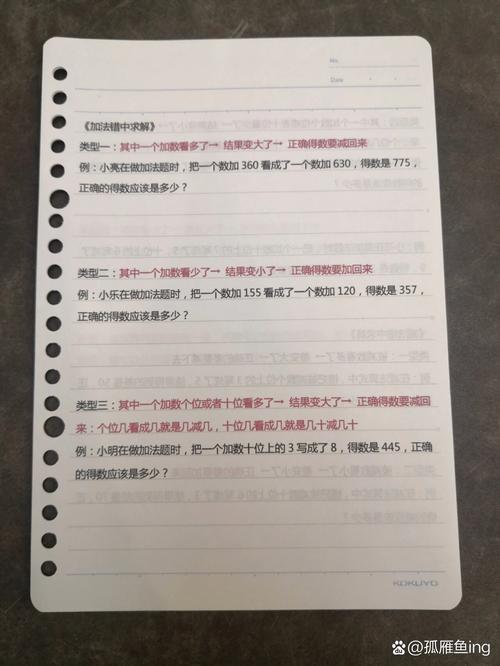 No.
Date
《加法错中求解》
类型一：其中一个加数看多了→ 结果变大了→ 正确得数要减回来
例：小亮在做加法题时，把一个数加 360 看成了一个数加 630，得数是 775，
正确的得数应该是多少？
类型二：其中一个加数看少了→ 结果变小了→ 正确得数要加回来
例：小乐在做加法题时，把一个数加 155 看成了一个数加 120，得数是 357，
正确的得数应该是多少？
类型三：其中一个加数个位或者十位看多了→ 结果变大了→ 正确得数要减回
来：个位几看成几就是几减几，十位几看成几就是几十减几十
例：小明在做加法题时，把一个加数十位上的 3 写成了 8，得数是 445，正确
的得数应该是多少？
KOKUYO
Bai百家号/孤雁鱼ing